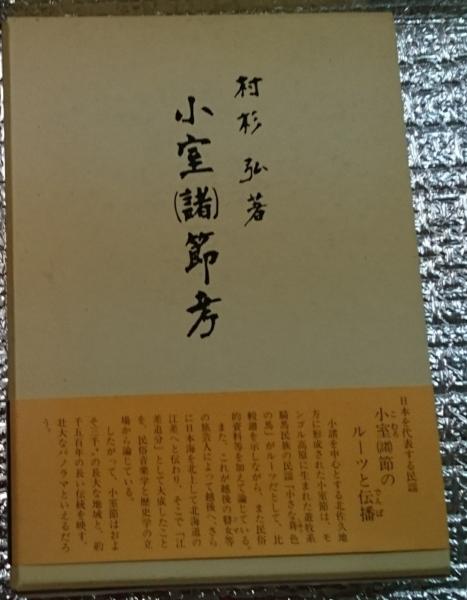 村杉弘著
小室(諸)節考
日本を代表する民謡
小室(諸)節の
こむろ
ルーツと伝播
でんぱ
小諸を中心とする北佐久地
方に形成された小室節は、モ
ンゴル高原に生まれた遊牧系
騎馬民族の民謡「小さな葦色
の馬」がルーツだとして、比
較譜を示しながら、また民俗
的資料等を加えて論じている。
また、これが越後の瞽女等
の旅芸人によって越後へ、さら
に日本海を北上して北海道の
江差へと伝わり、そこで「江
差追分」として大成したこと
を、民俗音楽学と歴史学の立
場から論じている。
したがって、小室節はおよ
そ三千㌔の長大な地域と、約
千五百年の長い伝統を映す、
壮大なパノラマといえるだろ
う。